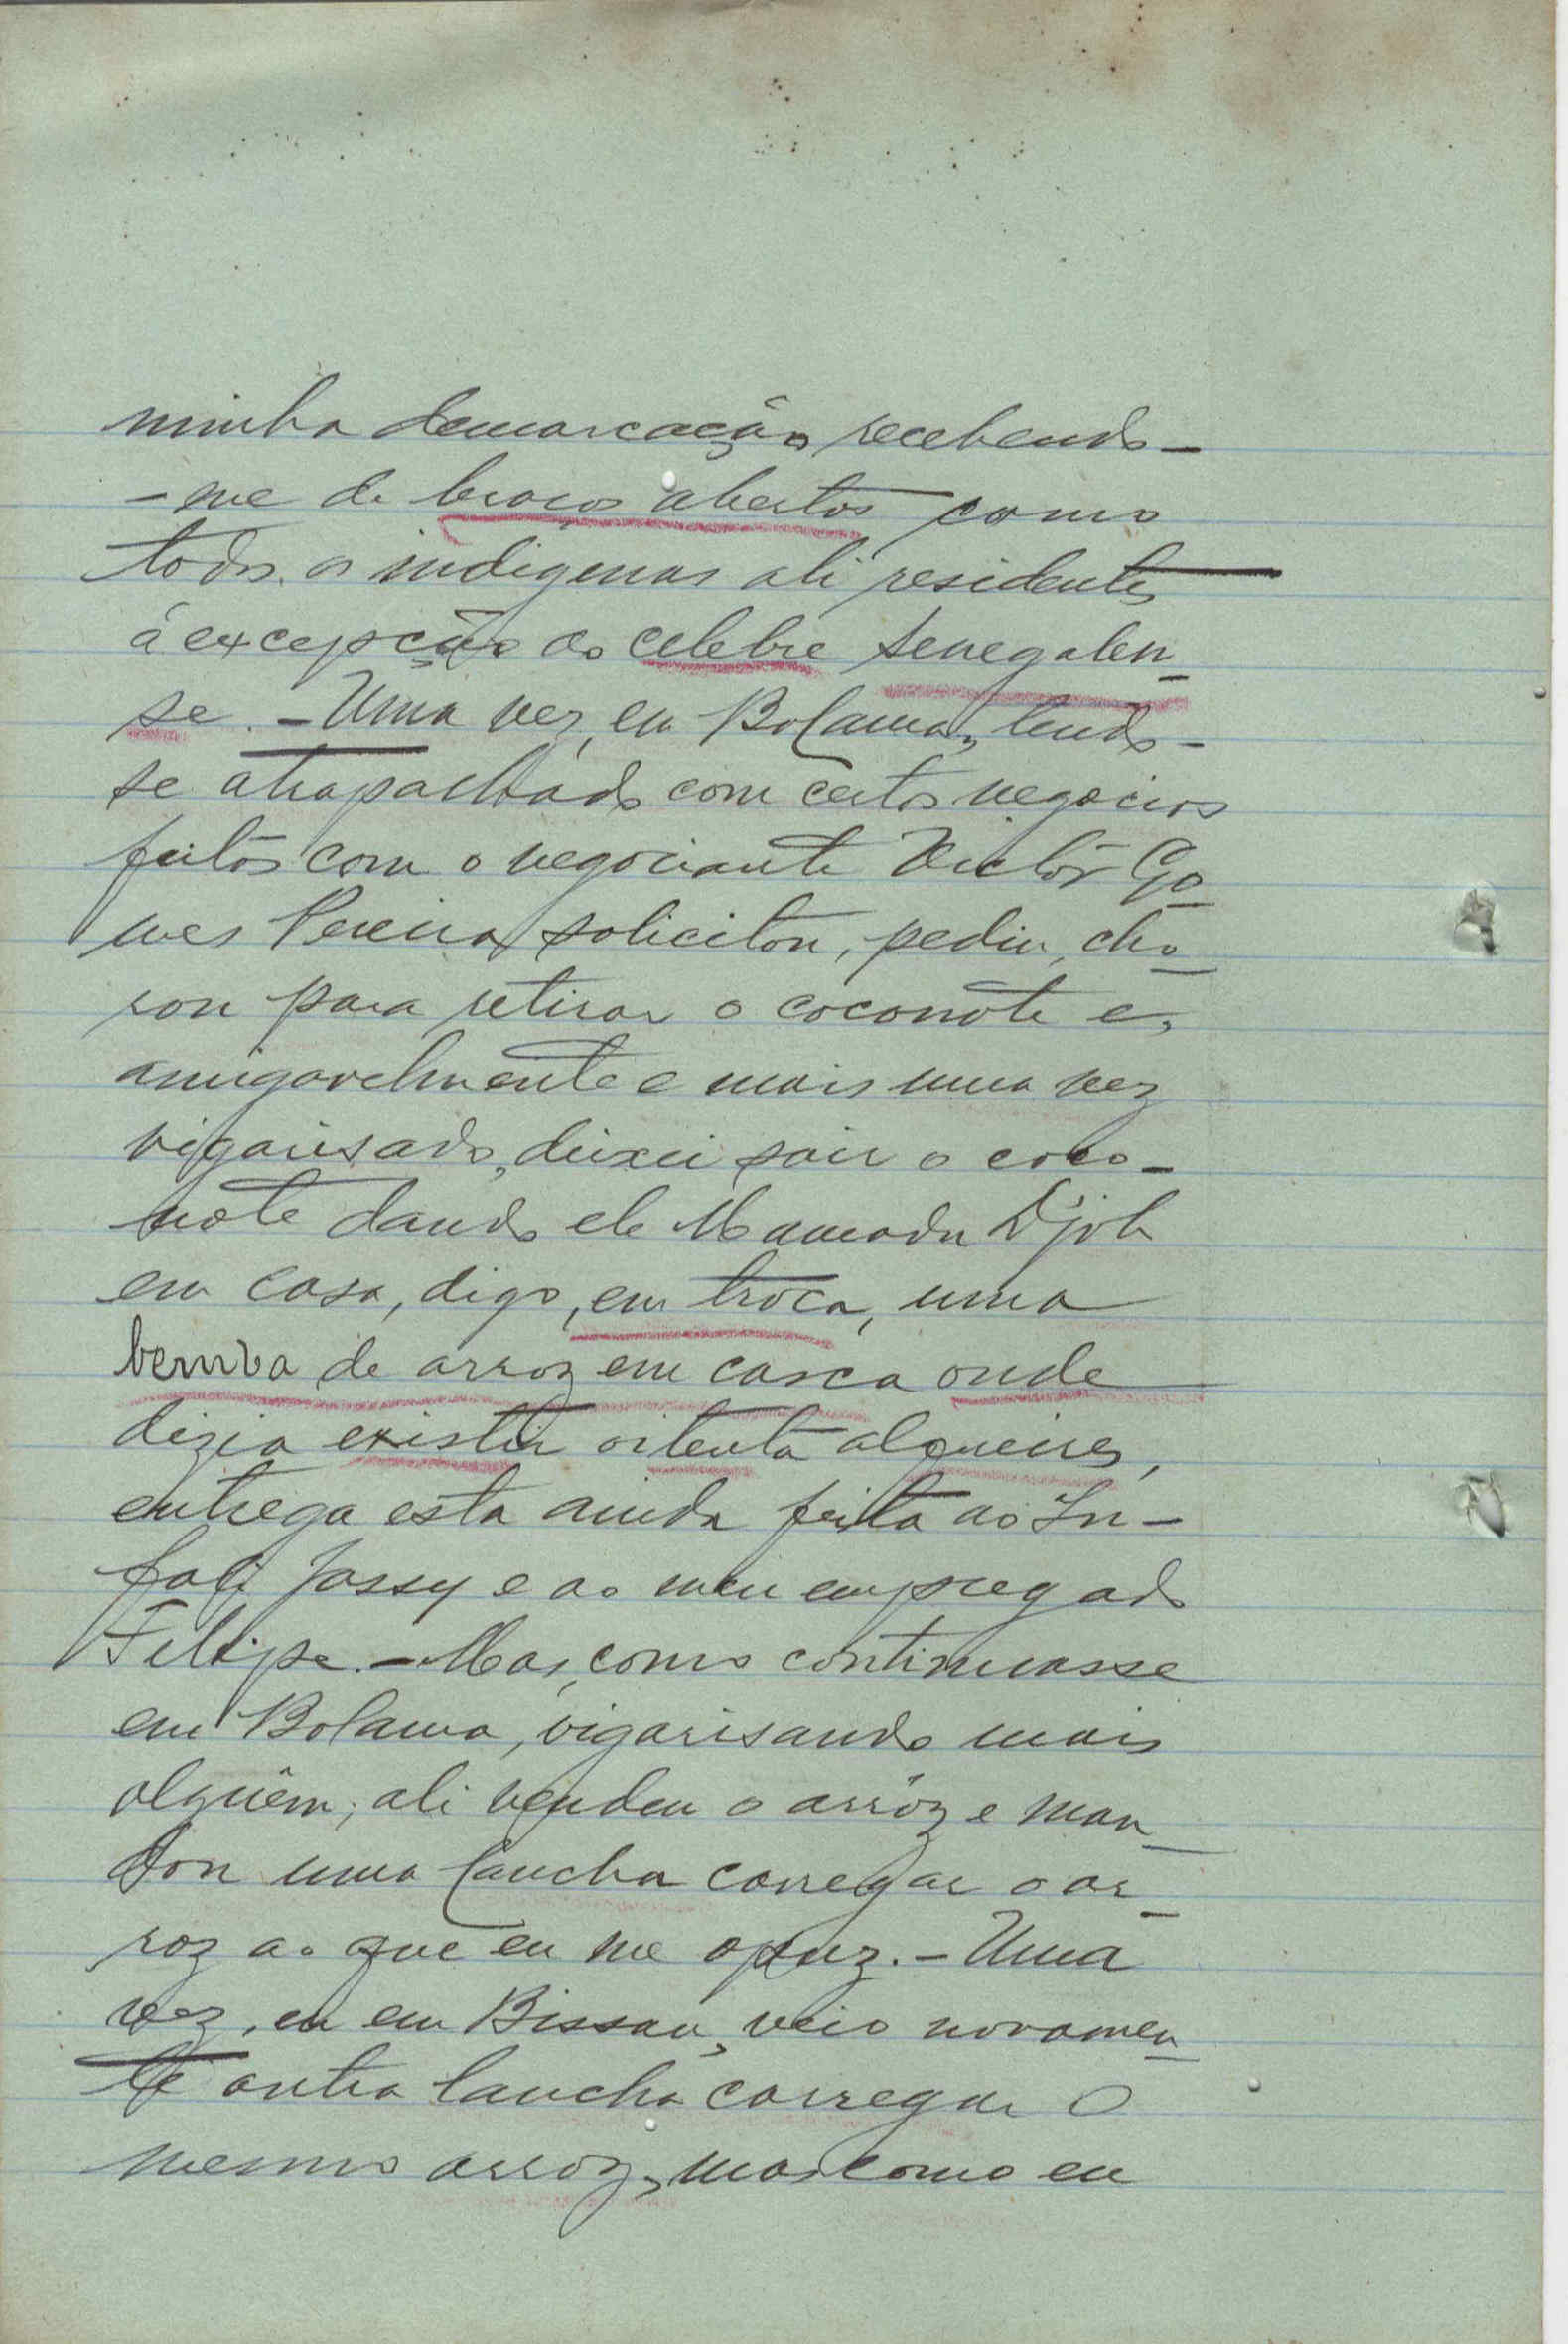 minha demarcação recebendo-
-me de braços abertos como
todos os indigenas ali residentes
á excepção do celebre senegalen-
se. - Uma vez, em Bolama, vendo-
se atrapalhado com certos negocios
feitos com o negociante Victôr Go-
mes Pereira, solicitou, pediu, cho-
rou para retirar o coconóte e,
amigavelmente e mais uma vez
vigarisado, deixei sair o coco-
note dando ele Mamadu D'joh
em casa, digo, em troca, uma
bemba de arroz em casca onde
dizia existir oitenta alqueires,
entrega esta ainda feita ao In-
fali Jassy e ao meu empregado
Felipe. - Mas, como continuasse
em Bolama, vigarisando mais
alguêm, ali vendeu o arrôz e man-
dou uma lancha carregar o ar-
roz ao que eu me opuz. - Uma
vez, eu em Bissau, veio novamen-
te outra lancha carregar o
mesmo arroz, mas como eu